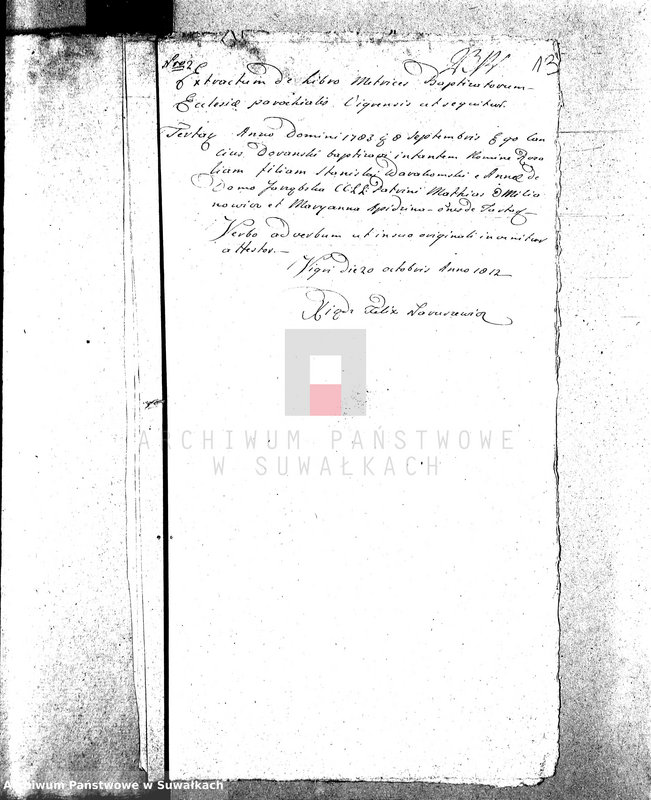 Nro 2 13
Extractum de Libro Metrices Baptizatorum
Ecclesiæ parochialis Vigrensis ut sequitur.
Tartak Anno Domini 1783 8 Septembris Ego Can
cius baptizavi infantem Nomine Rosa
liam filiam Stanislai e Annæ de
Domo CCLL Patrini Mathias Milia
nowicz et Maryanna de Tartak
Verbo ad verbum ut in suo originali invenitur
attestor.
Vigri die 20 octobris Anno 1812
Xiądz Felix
ARCHIWUM PAŃSTWOWE
W SUWAŁKACH
Archiwum Państwowe w Suwałkach